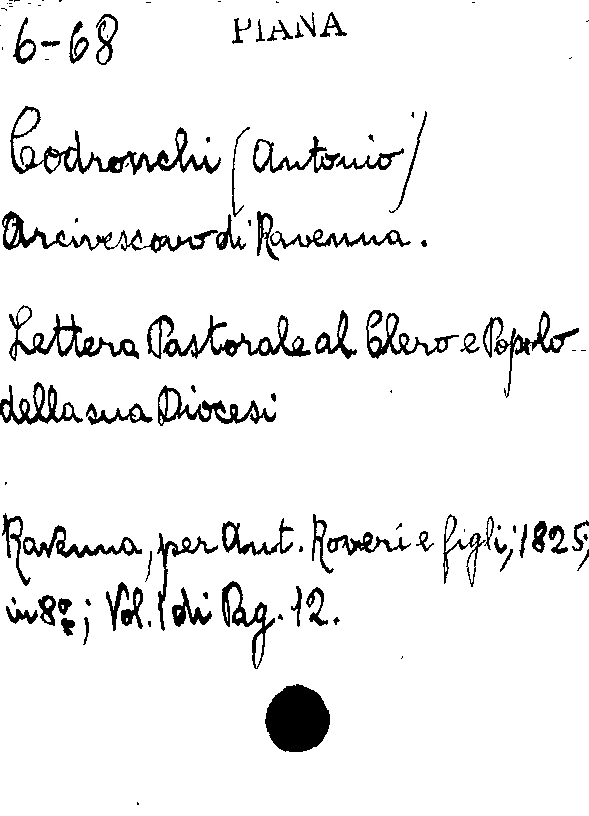 6-68 PIANA
Codronchi (Antonio)
Arcivescovo di Ravenna.
Lettera Pastorale al Clero e Popolo
della sua Diocesi
Ravenna, per Ant. Roveri e figli, 1825;
in 8º; Vol. 1 di Pag. 12.